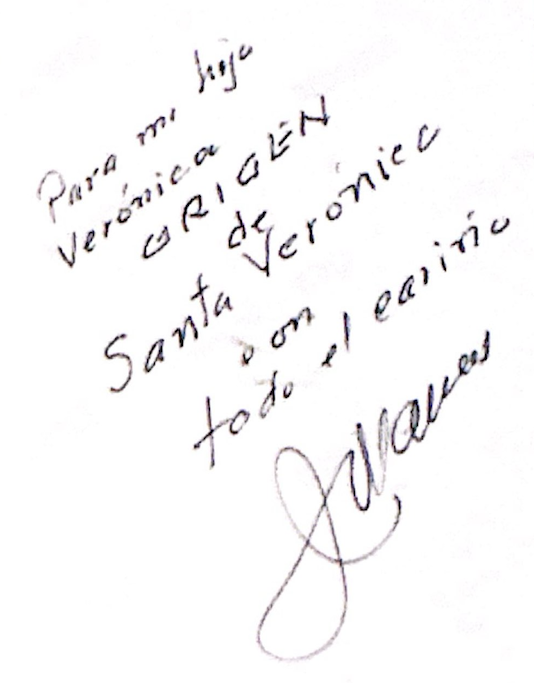 Para mi hija
Verónica
ORIGEN
de
Santa Verónica
con
todo el cariño